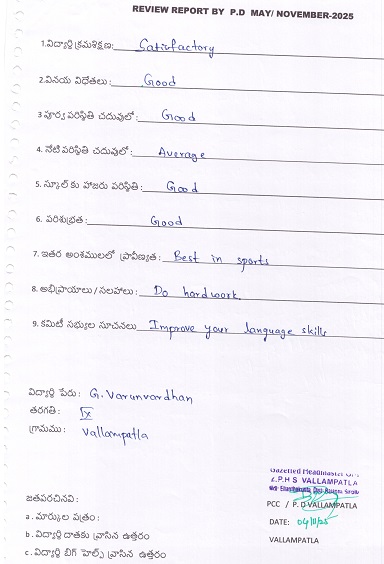 REVIEW REPORT BY P.D MAY/ NOVEMBER-2025
1.విద్యార్థి క్రమశిక్షణ: Satisfactory
2.వినయ విధేతలు: Good
3 పూర్వ పరిస్థితి చదువులో: Good
4. నేటి పరిస్థితి చదువులో: Average
5. స్కూల్ కు హాజరు పరిస్థితి: Good
6. పరిశుభ్రత: Good
7. ఇతర అంశములలో ప్రావీణ్యత: Best in sports
8. అభిప్రాయాలు/ సలహాలు: Do hardwork.
9. కమిటీ సభ్యుల సూచనలు Improve your language skills
విద్యార్థి పేరు: G. Varunvardhan
తరగతి: IX
గ్రామము: Vallampatla
Gazetted Headmaster
Z.P.H S VALLAMPATLA
జతపరచినవి:
PCC / P.D VALLAMPATLA
a. మార్కుల పత్రం:
DATE: 04/11/25
b. విద్యార్థి దాతకు వ్రాసిన ఉత్తరం
VALLAMPATLA
c. విద్యార్థి బిగ్ హెల్ప్ వ్రాసిన ఉత్తరం